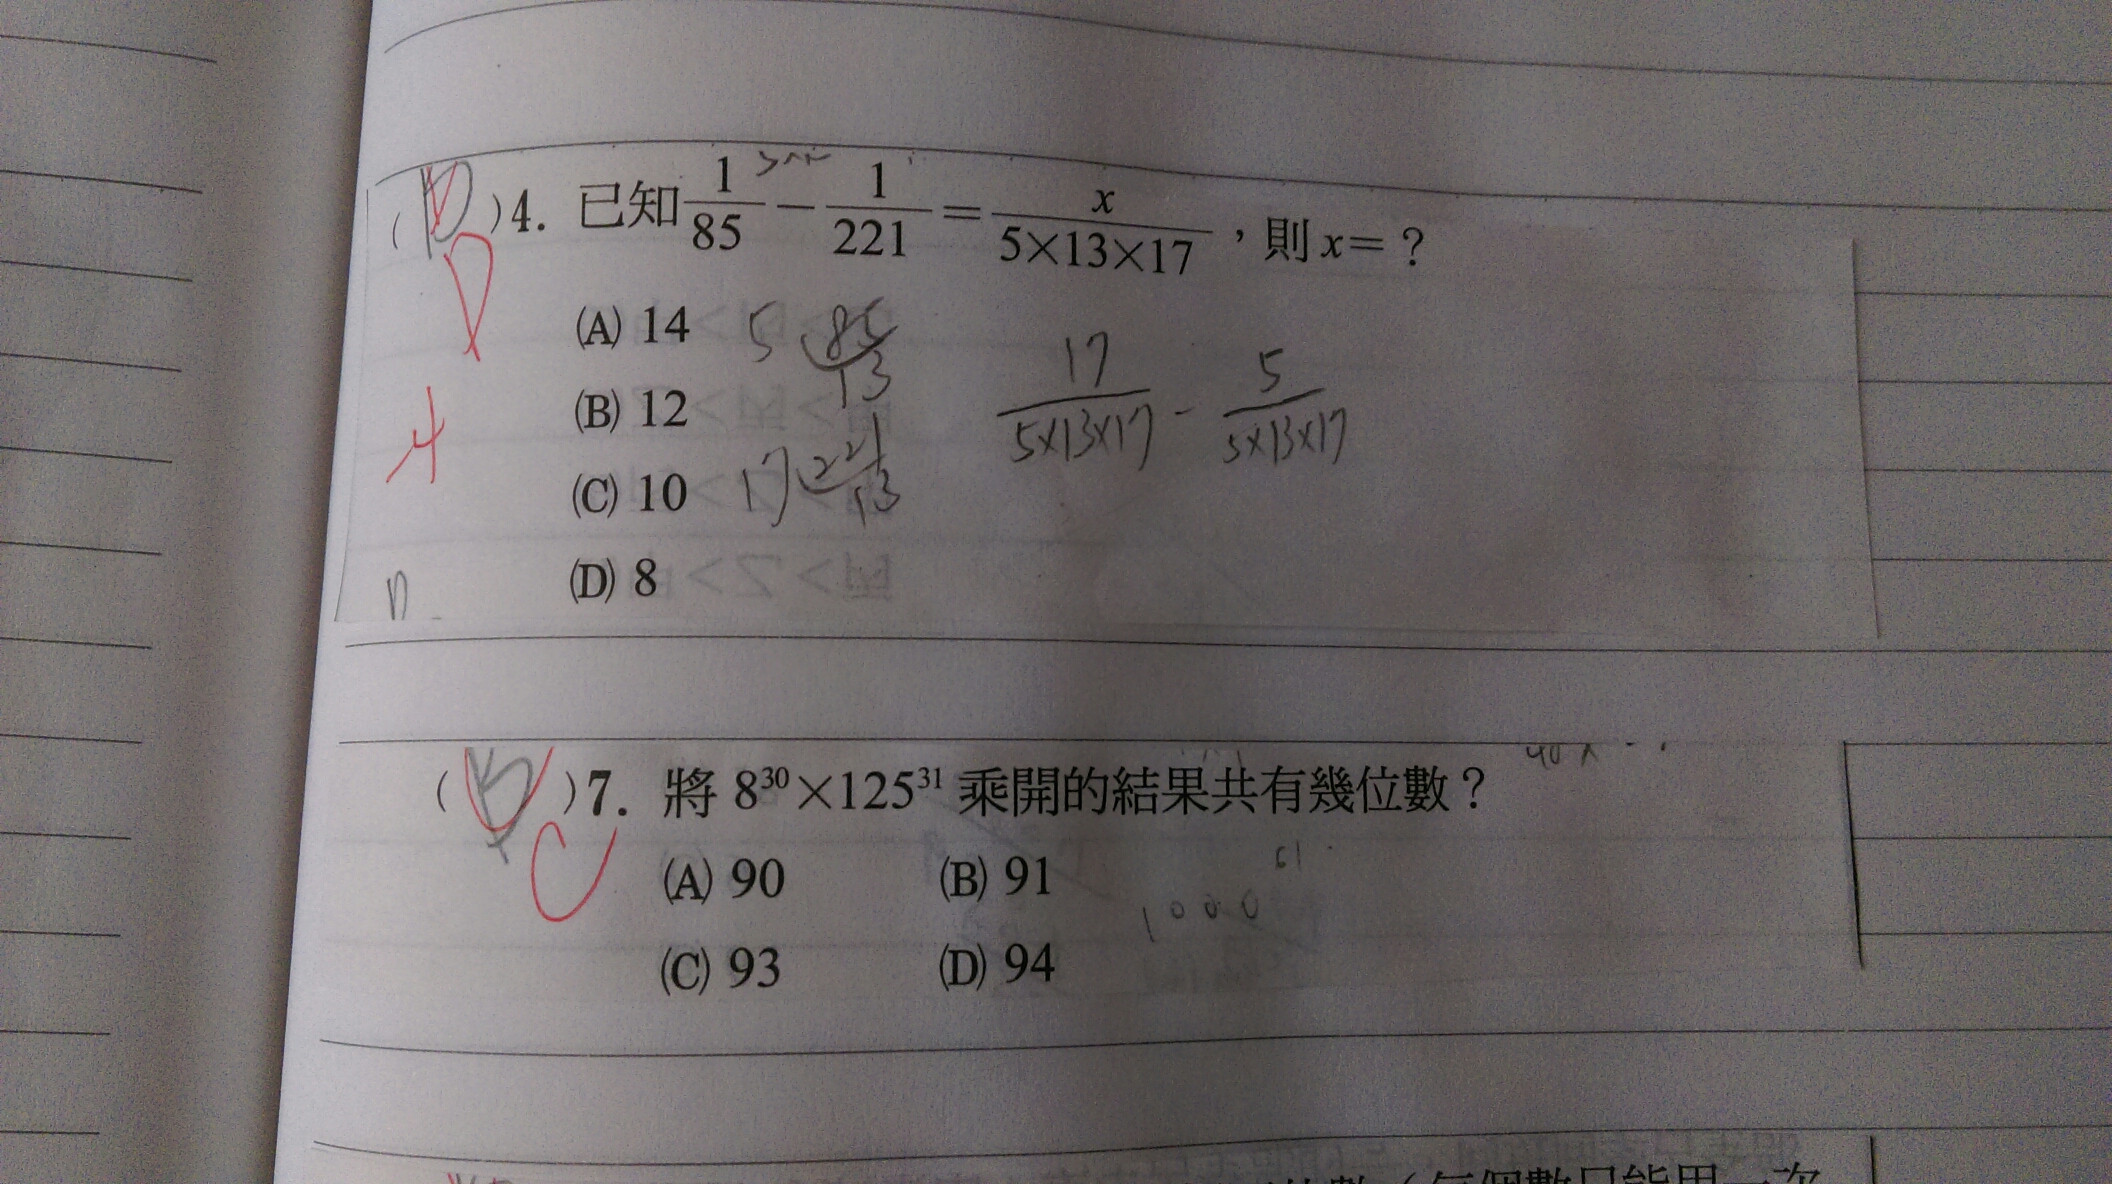 (D)4. 已知 1/85 − 1/221 = x/(5×13×17)，則 x=？
D
(A) 14
5 85
13
17/(5×13×17) - 5/(5×13×17)
(B) 12
(C) 10
17 221
13
(D) 8
( )7. 將 8³⁰×125³¹ 乘開的結果共有幾位數？
C
(A) 90 (B) 91
61
1000
(C) 93 (D) 94